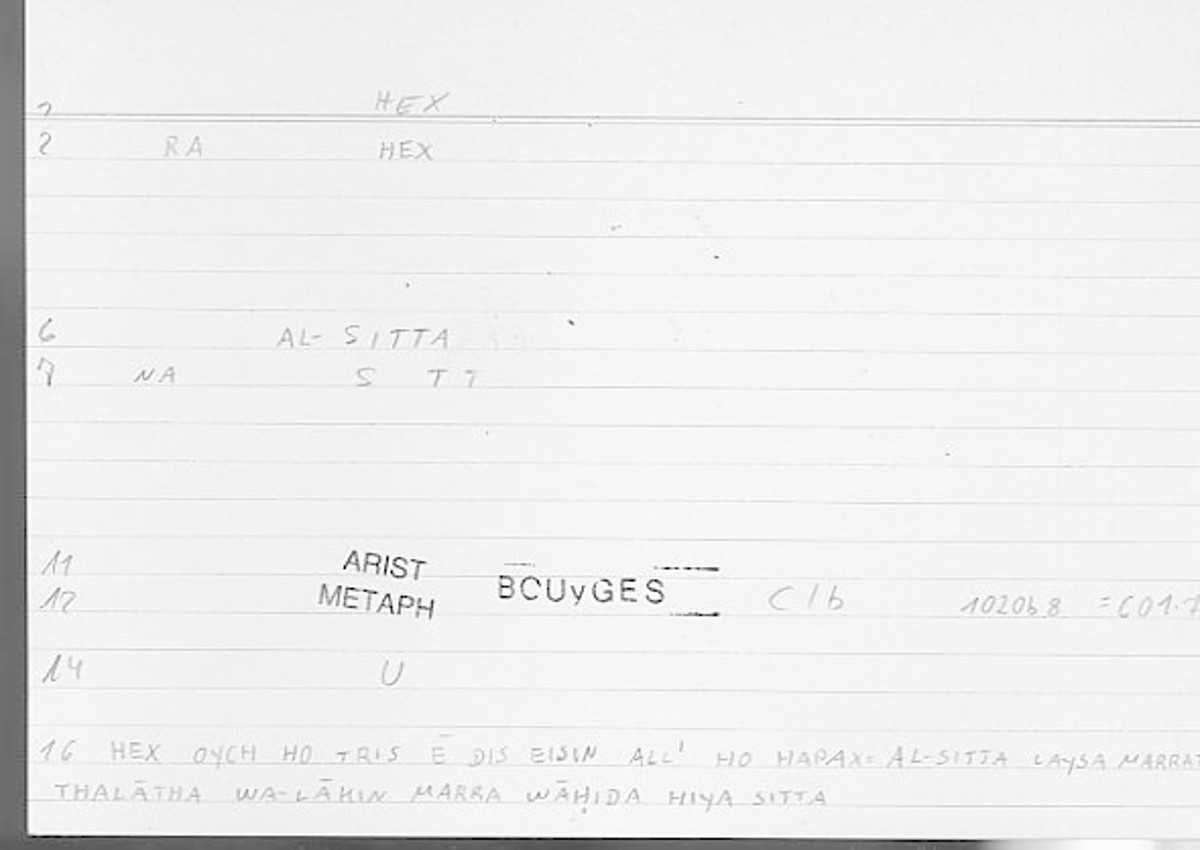 1 HEX
2 RA HEX
6 AL-SITTA
7 NA S T T
11 ARIST
12 METAPH BCUyGES C/b 1020b8 =601.7
14 U
16 HEX OYCH HO TRIS Ē DIS EISIN ALL' HO HAPAX= AL-SITTA LAYSA MARRAT
THALĀTHA WA-LĀKIN MARRA WĀḤIDA HIYA SITTA